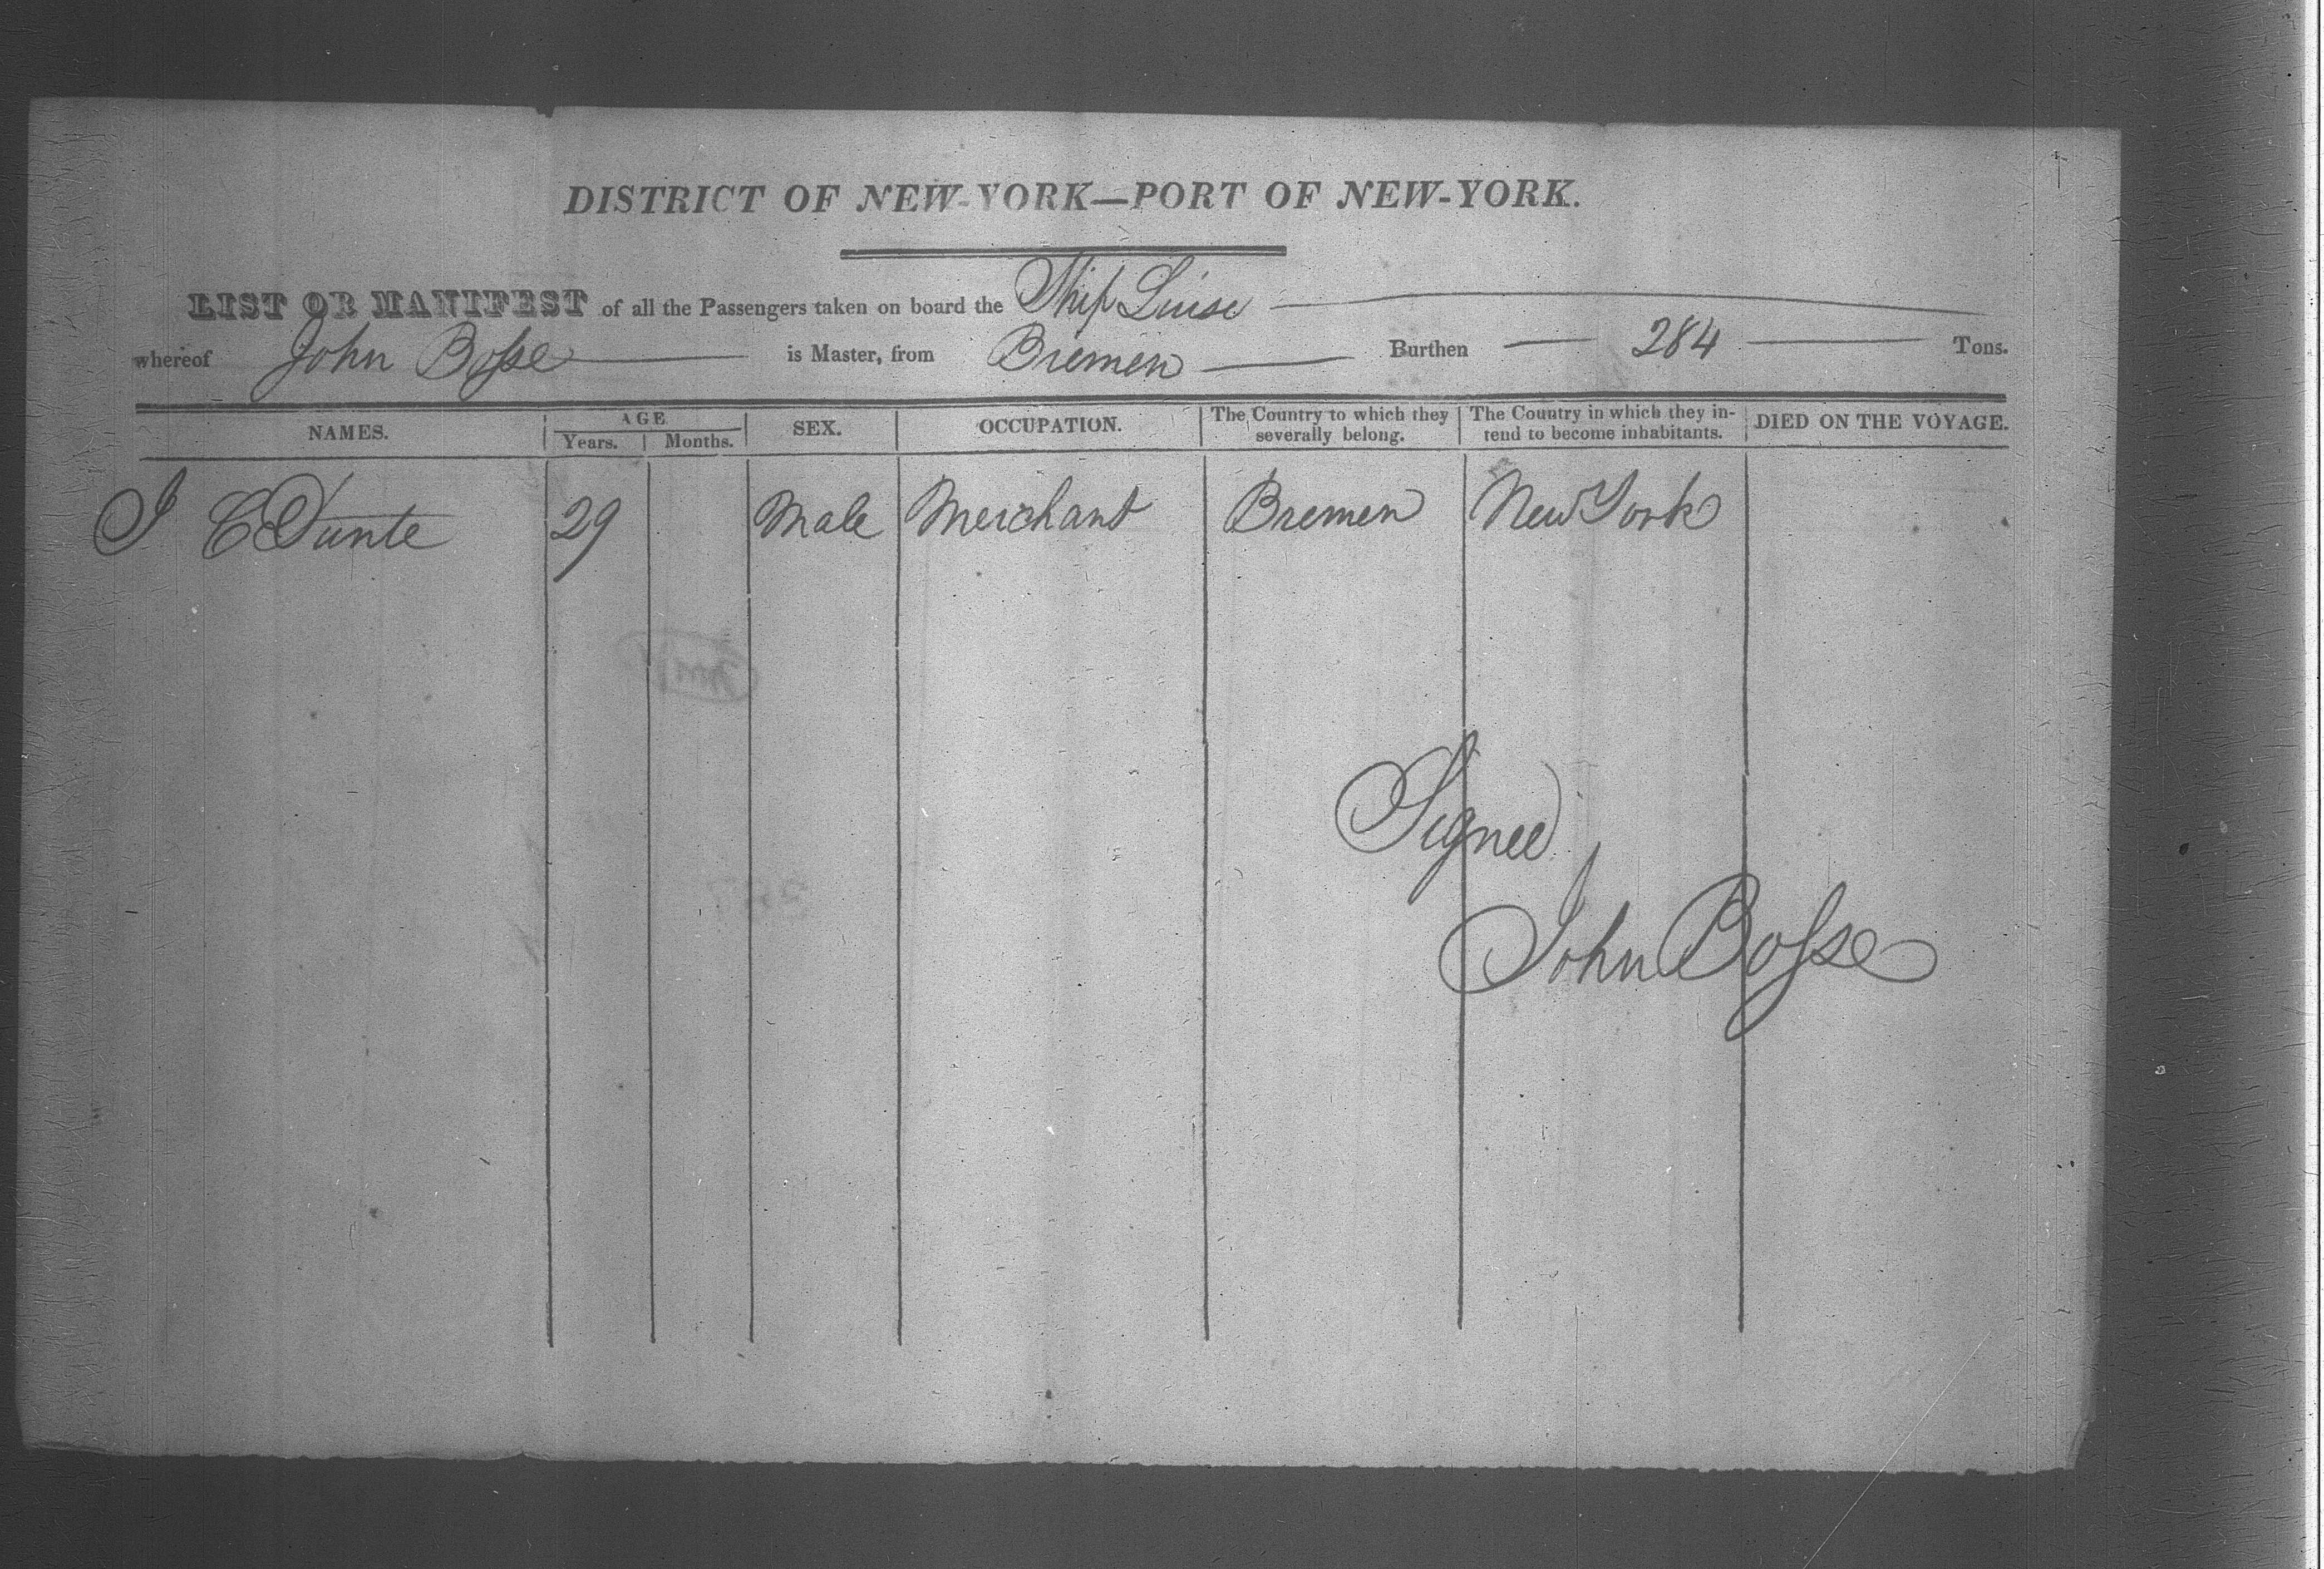 DISTRICT OF NEW-YORK—PORT OF NEW-YORK.
LIST OR MANIFEST of all the Passengers taken on board the Ship Luise
whereof John Bosse is Master, from Bremen Burthen 284 Tons.
NAMES. AGE SEX. OCCUPATION. The Country to which they severally belong. The Country in which they intend to become inhabitants. DIED ON THE VOYAGE.
Years. Months.
J C Dunte 29 Male Merchant Bremen New York
Signed
John Bosse